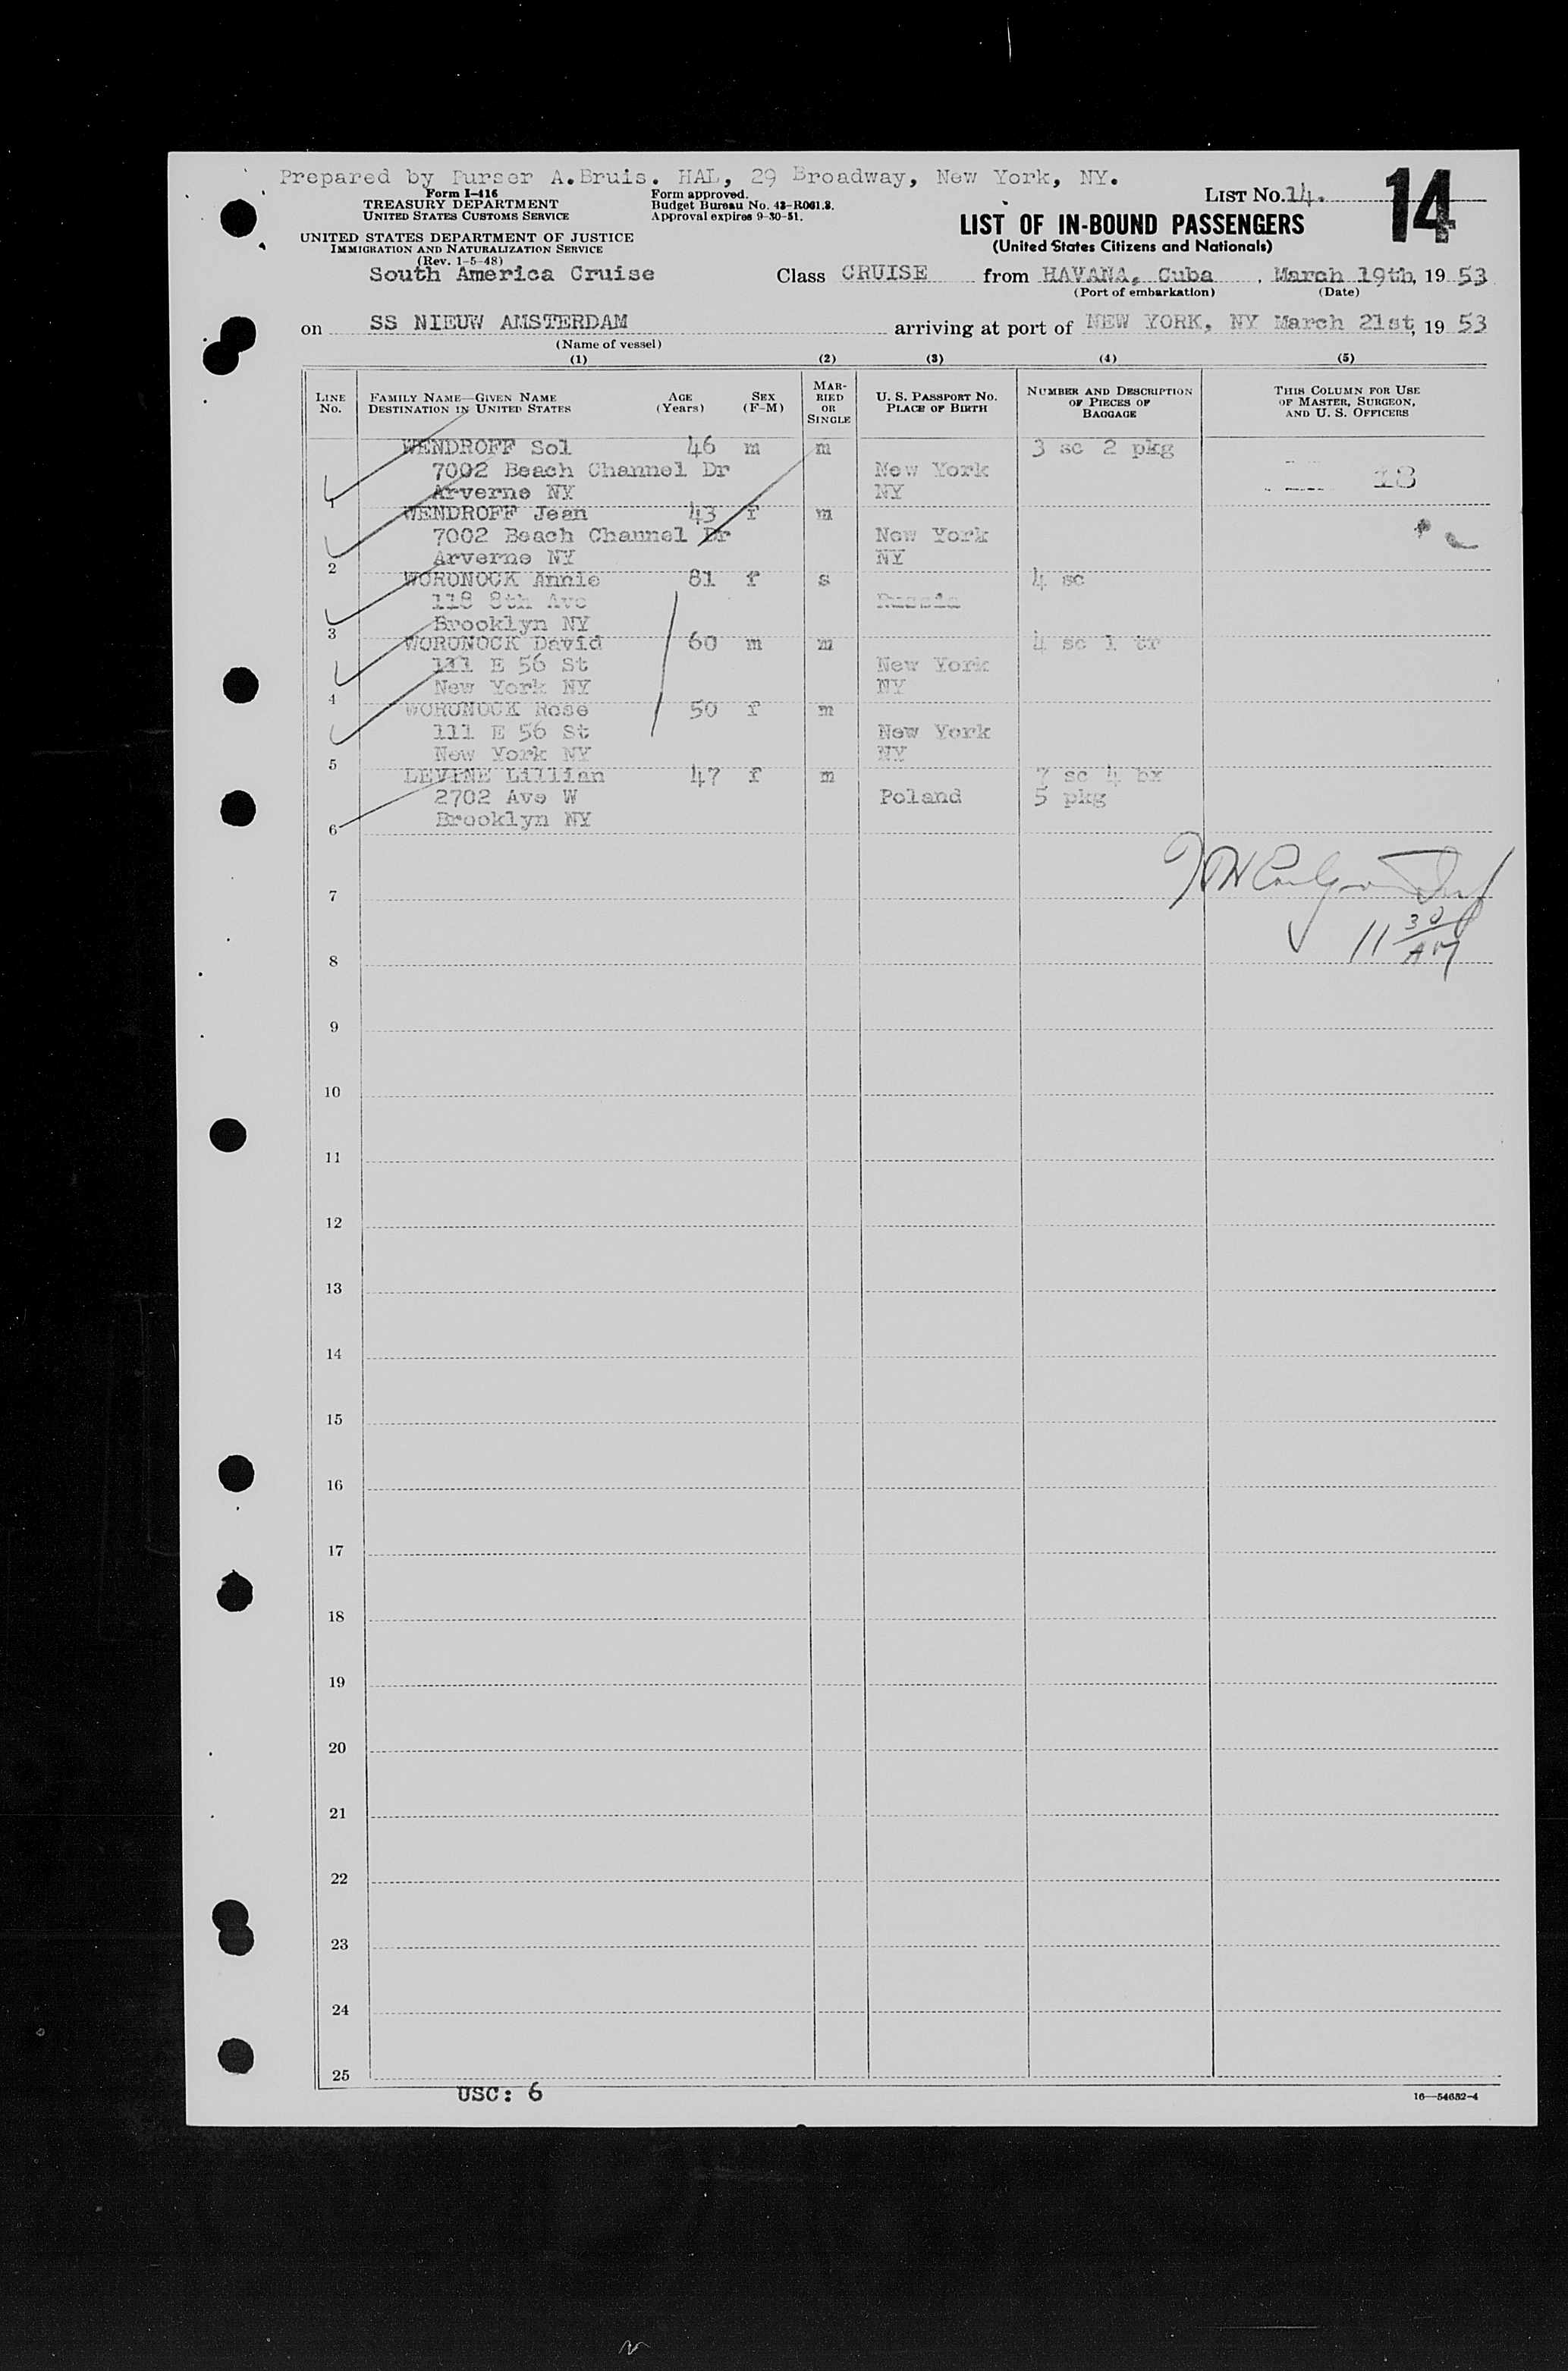 Prepared by Purser A.Bruis. HAL, 29 Broadway, New York, NY.
Form I-416
TREASURY DEPARTMENT
UNITED STATES CUSTOMS SERVICE
Form approved.
Budget Bureau No. 43-R061.3.
Approval expires 9-30-51.
LIST No. 14.
14
UNITED STATES DEPARTMENT OF JUSTICE
IMMIGRATION AND NATURALIZATION SERVICE
(Rev. 1-5-48)
LIST OF IN-BOUND PASSENGERS
(United States Citizens and Nationals)
South America Cruise Class CRUISE from HAVANA, Cuba , March 19th, 19 53
(Port of embarkation) (Date)
on SS NIEUW AMSTERDAM arriving at port of NEW YORK, NY March 21st, 19 53
(Name of vessel)
(1) (2) (3) (4) (5)
LINE No. FAMILY NAME—GIVEN NAME DESTINATION IN UNITED STATES AGE (Years) SEX (F-M) MARRIED OR SINGLE U. S. PASSPORT NO. PLACE OF BIRTH NUMBER AND DESCRIPTION OF PIECES OF BAGGAGE THIS COLUMN FOR USE OF MASTER, SURGEON, AND U. S. OFFICERS
WENDROFF Sol 46 m m 3 sc 2 pkg
7002 Beach Channel Dr New York 18
1 Arverne NY NY
WENDROFF Jean 43 f m
7002 Beach Channel Dr New York
2 Arverne NY NY
WORONOCK Annie 81 f s 4 sc
118 8th Ave Russia
3 Brooklyn NY
WORONOCK David 60 m m 4 sc 1 tr
111 E 56 St New York
4 New York NY NY
WORONOCK Rose 50 f m
111 E 56 St New York
5 New York NY NY
LEVINE Lillian 47 f m 7 sc 4 bx
2702 Ave W Poland 5 pkg
6 Brooklyn NY
7
11 30 AM
8
9
10
11
12
13
14
15
16
17
18
19
20
21
22
23
24
25
USC: 6
16—54652-4